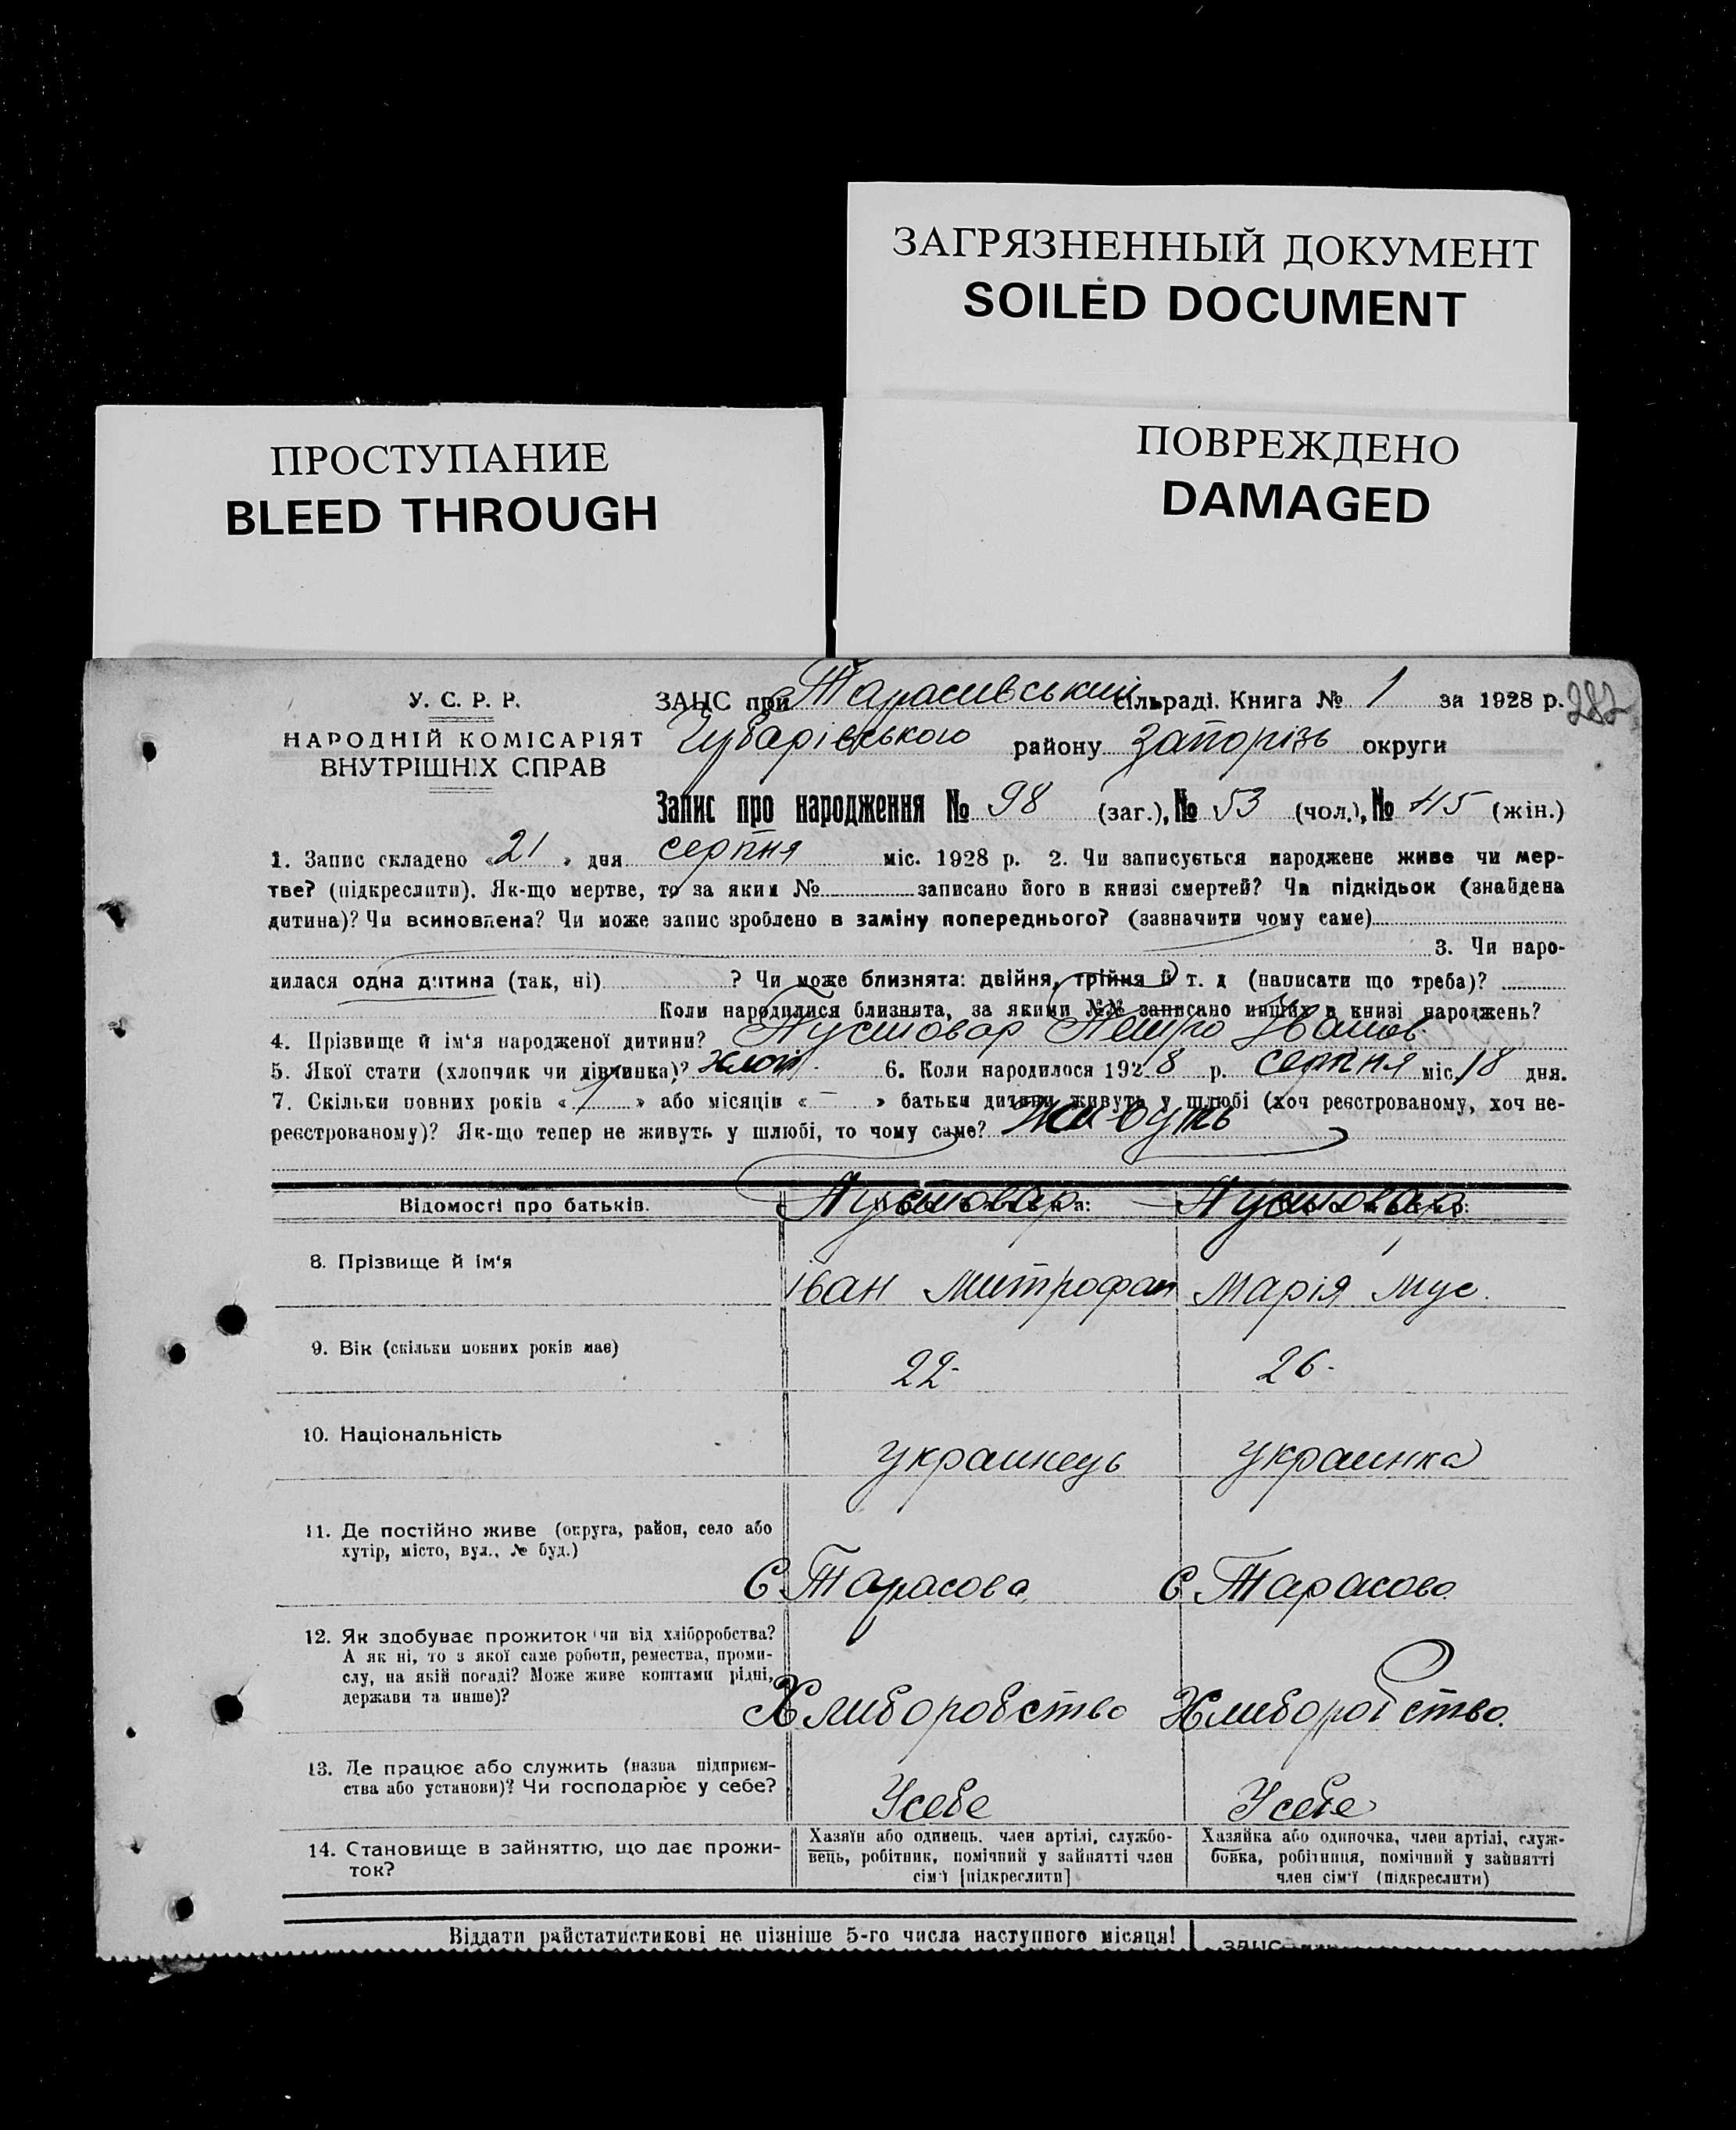 ЗАГРЯЗНЕННЫЙ ДОКУМЕНТ
SOILED DOCUMENT
ПРОСТУПАНИЕ
BLEED THROUGH
ПОВРЕЖДЕНО
DAMAGED
У. С. Р. Р.
НАРОДНІЙ КОМІСАРІЯТ
ВНУТРІШНІХ СПРАВ
ЗАНС при Тарасивський сільраді. Книга № 1 за 1928 р. 282
Губарівського району Запорізь округи
Запис про народження № 98 (заг.), № 53 (чол.), № 45 (жін.)
1. Запис складено «21» дня серпня міс. 1928 р. 2. Чи записується народжене живе чи мер-
тве? (підкреслити). Як-що мертве, то за яким № записано його в книзі смертей? Чи підкідьок (знайдена
дитина)? Чи всиновлена? Чи може запис зроблено в заміну попереднього? (зазначити чому саме)
3. Чи наро-
дилася одна дитина (так, ні) ? Чи може близнята: двійня, трійня й т. д (написати що треба)?
Коли народилися близнята, за якими №№ записано инших в книзі народжень?
4. Прізвище й ім'я народженої дитини? Пустовар Петро Иванов
5. Якої стати (хлопчик чи дівчинка)? хлоп. 6. Коли народилося 1928 р. серпня міс. 18 дня.
7. Скільки повних років « » або місяців « – » батьки дитини живуть у шлюбі (хоч реєстрованому, хоч не-
реєстрованому)? Як-що тепер не живуть у шлюбі, то чому саме? Живуть
Відомості про батьків. Пустовар Пустовар
8. Прізвище й ім'я
іван Митрофан Марія Мус.
9. Вік (скільки повних років має)
22- 26-
10. Національність
украинець украинка
11. Де постійно живе (округа, район, село або
хутір, місто, вул., № буд.)
С. Тарасова С. Тарасово
12. Як здобуває прожиток чи від хліборобства?
А як ні, то з якої саме роботи, ремества, проми-
слу, на якій посаді? Може живе коштами рідні,
держави та инше)?
Хлиборобство Хлиборобство.
13. Де працює або служить (назва підприєм-
ства або установи)? Чи господарює у себе?
У себе У себе
14. Становище в зайняттю, що дає прожи-
ток?
Хазяїн або одинець. член артілі, службо-
вець, робітник, помічний у зайнятті член
сім'ї [підкреслити]
Хазяйка або одиночка, член артілі, служ-
бовка, робітниця, помічний у зайнятті
член сім'ї (підкреслити)
Віддати райстатистикові не пізніше 5-го числа наступного місяця!